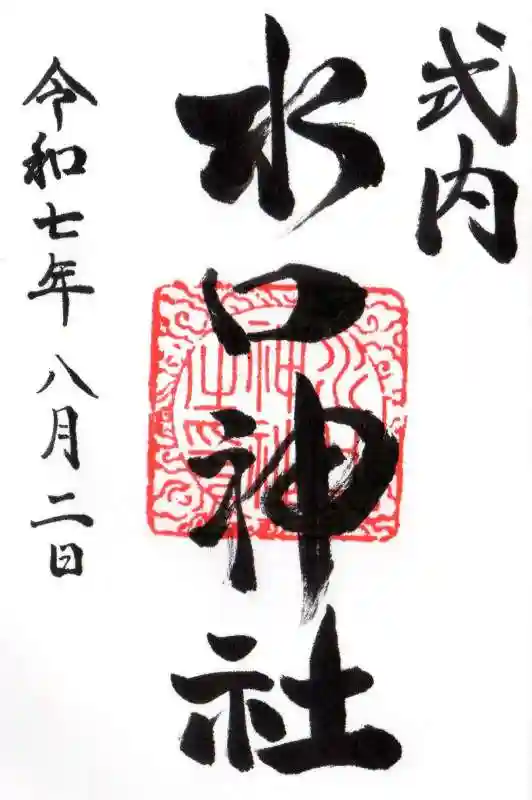 式内
水口神社
令和七年 八月二日